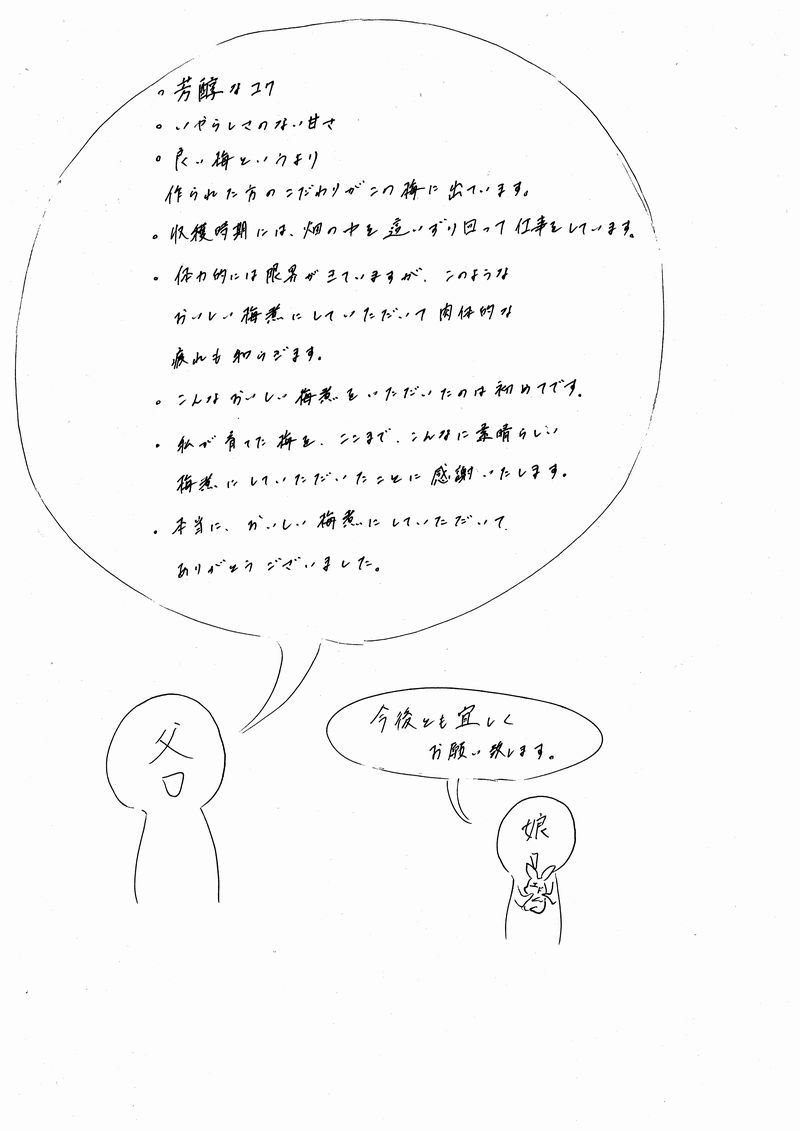 。芳醇なコク
。いやらしさのない甘さ
。良い梅というより
作られた方のこだわりがこの梅に出ています。
。収穫時期には、畑の中を這いずり回って仕事をしています。
。体力的には限界がきていますが、このような
おいしい梅煮にしていただいて肉体的な
疲れも和らぎます。
。こんなおいしい梅煮をいただいたのは初めてです。
。私が育てた梅を、ここまで、こんなに素晴らしい
梅煮にしていただいたことに感謝いたします。
。本当に、おいしい梅煮にしていただいて
ありがとうございました。
父
今後とも宜しく
お願い致します。
娘